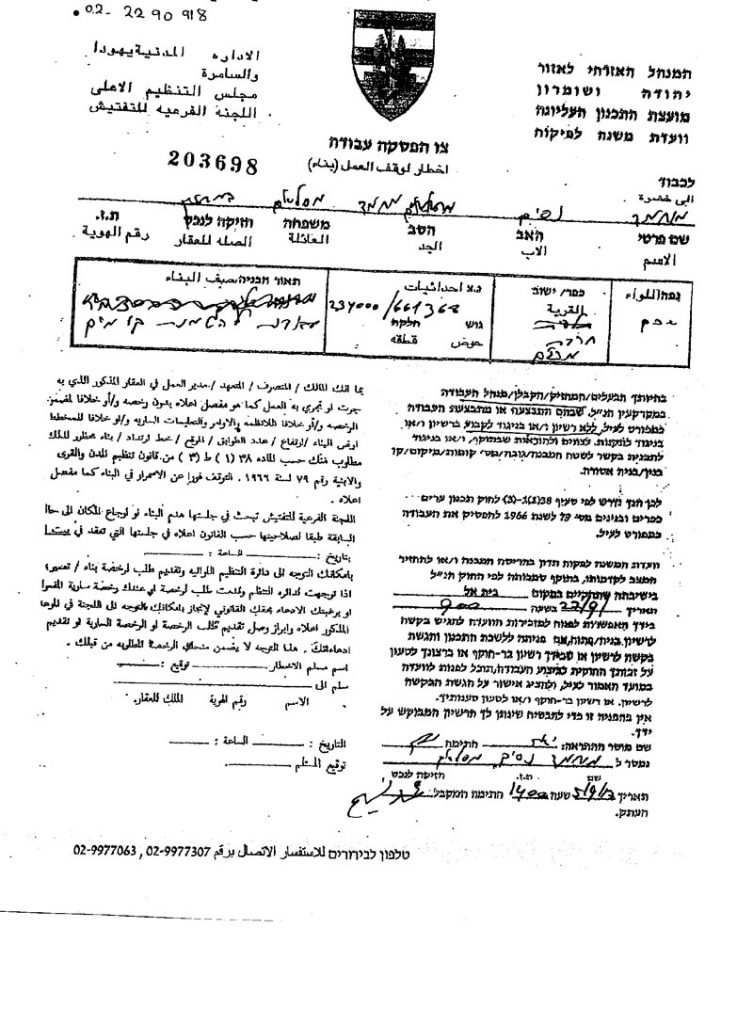 02-2290918
המנהל האזרחי לאזור
יהודה ושומרון
מועצת התכנון העליונה
וועדת משנה לפיקוח
الاداره المدنية يهودا
والسامرة
مجلس التنظيم الاعلى
اللجنة الفرعيه للتفتيش
צו הפסקה עבודה
اخطار لوقف العمل (بناء)
203698
לכבוד
الى حضرة
מוחמד נסים
שם פרטי האב הסב משפחה חזיקה לנכס ת.ז.
الاسم الاب الجد العائلة الصله للعقار رقم الهوية
נפה/اللواء
כפר/ ישוב
القرية
נ.צ احداثيات
234000/661368
גוש חלקה
حوض قطعه
תאור הבניה/صيف البناء
בהיותך הבעלים/המחזיק/הקבלן/מנהל העבודה
במקרקעין הנ"ל, שבהם התבצעה או מתבצעת העבודה
כמפורט לעיל, ללא רשיון ו/או בניגוד לקבוע ברשיון ו/או
בניגוד לתקנות, לצווים ולהוראות שבתוקף, ו/או בניגוד
לתכנית בקשר לשטח המבנה/גובה/מס' קומות/מיקום/קו
בנין/בניה אסורה.
לכן הנך נדרש לפי סעיף 38(1)(ג) לחוק תכנון ערים
כפרים ובנינים מס' 79 לשנת 1966 להפסיק את העבודה
כמפורט לעיל.
וועדת המשנה לפקוח תדון בהריסת המבנה ו/או להחזיר
המצב לקדמותו, בתוקף סמכותה לפי החוק הנ"ל
בישיבתה שתתקיים במקום בית אל
תאריך 22/9/ בשעה 900
בידך האפשרות לפנות למזכירות הוועדה להגיש בקשה
לרישיון בניה/פתוח, אם פניתה ללשכת התכנון והגשת
בקשה לרשיון או שבידך רשיון בר-תוקף או ברצונך לטעון
על זכותך החוקית לביצוע העבודה, תוכל לפנות לוועדה
במועד האמור לעיל, ולהציג אישור על הגשת הבקשה
לרישיון, או רשיון בר-תוקף ו/או לטעון טענותיך.
אין בהפניה זו כדי להבטיח שינתן לך הרשיון המבוקש על
ידך.
שם מוסר ההתראה: חתימה
נמסר ל מוחמד נסים
שם ת.ז. חזיקה לנכס
תאריך 5/9/12 שעה 1400 חתימת המקבל:
העתק.
بما انك المالك / المتصرف / المتعهد / مدير العمل في العقار المذكور الذي به
جرت او تجري به العمل كما هو مفصل اعلاه بدون رخصه و/او خلافا لمضمون
الرخصه و/او خلافا للانظمه والاوامر والتعليمات الساريه و/او خلافا للمخطط
ارض البناء /ارتفاع / عدد الطوابق / الموقع / خط ارتداد / بناء محظور لذلك
مطلوب منك حسب الماده ٣٨ (١) ط (٣) من قانون تنظيم المدن والقرى
والابنية رقم ٧٩ لسنة ١٩٦٦. التوقف فورا عن الاستمرار في البناء كما مفصل
اعلاه.
اللجنة الفرعيه للتفتيش تبحث في جلستها هدم البناء او ارجاع المكان الى حالته
السابقة طبقا لصلاحيتها حسب القانون اعلاه في جلستها التي تعقد في
بتاريخ: الساعة:
بامكانك التوجه الى دائرة التنظيم اللوائيه وتقديم طلب لرخصة بناء / تعمير؛
اذا توجهت لدائره التنظيم وقدمت طلب لرخصة او عندك رخصة سارية المفعول
او برغبتك الادعاء بحقك القانوني لإنجاز بامكانك التوجه الى اللجنة في الموعد
المذكور اعلاه وابراز وصل تقديم طلب الرخصة او الرخصة السارية او تقديم
ادعاءاتك. هذا التوجه لا يضمن منحك الرخصة المطلوبه من قبلك.
اسم مسلم الاخطار توقيع:
سلم الى
الاسم رقم الهوية المالك للعقار.
التاريخ: الساعة:
توقيع المستلم
טלפון לבירורים للاستفسار الاتصال برقم 02-9977307 , 02-9977063